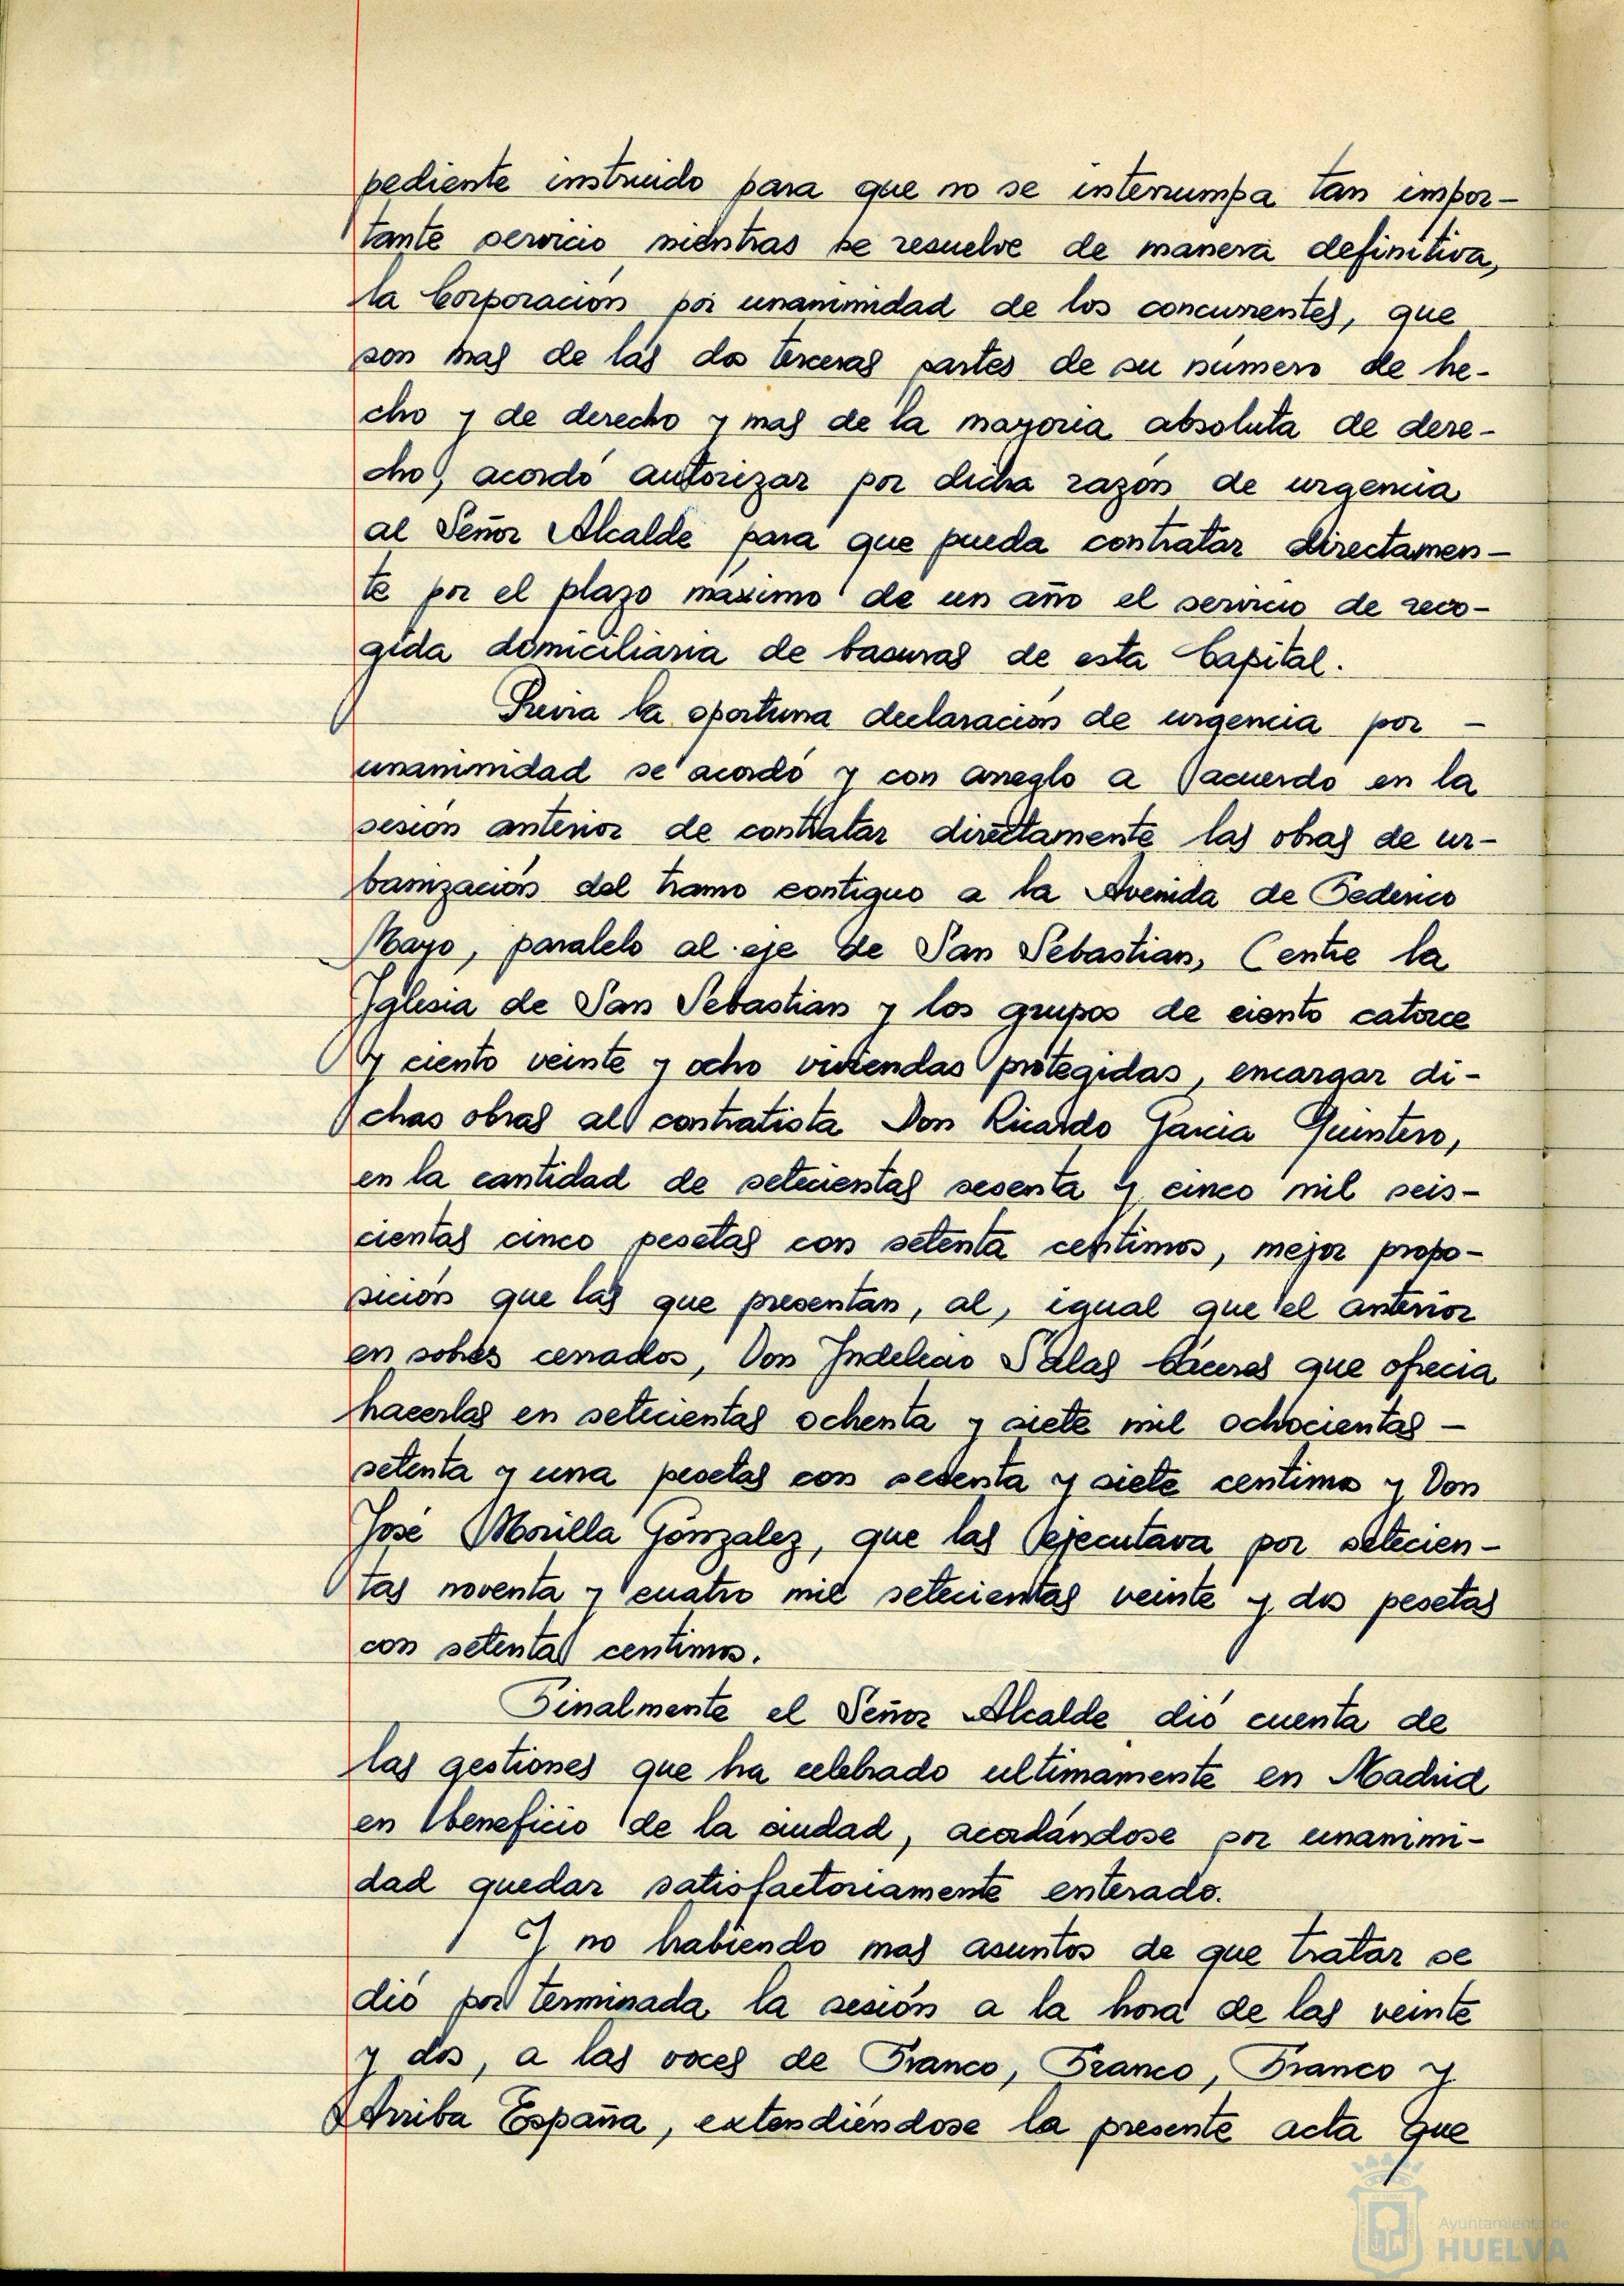 pediente instruido para que no se interrumpa tan impor-
tante servicio mientras se resuelve de manera definitiva,
la Corporación por unanimidad de los concurrentes, que
son mas de las dos terceras partes de su número de he-
cho y de derecho y mas de la mayoria absoluta de dere-
cho, acordó autorizar por dicha razón de urgencia
al Señor Alcalde para que pueda contratar directamen-
te por el plazo máximo de un año el servicio de reco-
gida domiciliaria de basuras de esta Capital.
Previa la oportuna declaración de urgencia por -
unanimidad se acordó y con arreglo a acuerdo en la
sesión anterior de contratar directamente las obras de ur-
banización del tramo contiguo a la Avenida de Federico
Mayo, paralelo al eje de San Sebastian, (entre la
Iglesia de San Sebastian y los grupos de ciento catorce
y ciento veinte y ocho viviendas protegidas, encargar di-
chas obras al contratista Don Ricardo Garcia Quintero,
en la cantidad de setecientas sesenta y cinco mil seis-
cientas cinco pesetas con setenta centimos, mejor propo-
sición que las que presentan, al, igual que el anterior
en sobres cerrados, Don Indelecio Salas Cáceres que ofrecia
hacerlas en setecientas ochenta y siete mil ochocientas -
setenta y una pesetas con sesenta y siete centimos y Don
José Morilla González, que las ejecutava por setecien-
tas noventa y cuatro mil setecientas veinte y dos pesetas
con setenta centimos.
Finalmente el Señor Alcalde dió cuenta de
las gestiones que ha celebrado ultimamente en Madrid
en beneficio de la ciudad, acordándose por unanimi-
dad quedar satisfactoriamente enterado.
Y no habiendo mas asuntos de que tratar se
dió por terminada la sesión a la hora de las veinte
y dos, a las voces de Franco, Franco, Franco y
Arriba España, extendiéndose la presente acta que
Ayuntamiento de
HUELVA